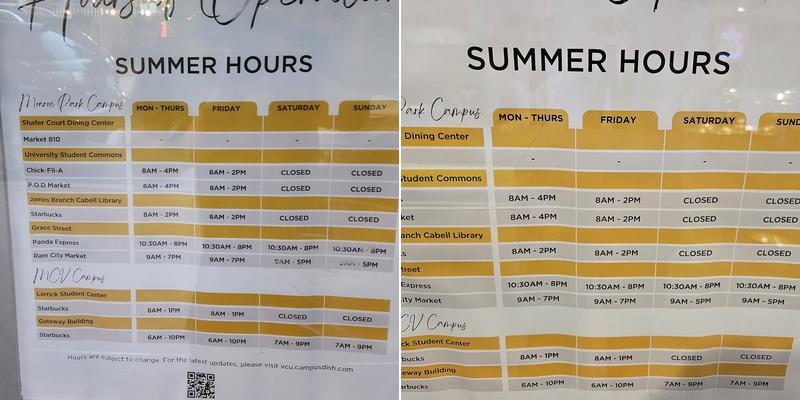 Hours of Operation
SUMMER HOURS
Monroe Park Campus MON - THURS FRIDAY SATURDAY SUNDAY
Shafer Court Dining Center
Market 810 - - - -
University Student Commons
Chick-Fil-A 8AM - 4PM 8AM - 2PM CLOSED CLOSED
P.O.D Market 8AM - 4PM 8AM - 2PM CLOSED CLOSED
James Branch Cabell Library
Starbucks 8AM - 2PM 8AM - 2PM CLOSED CLOSED
Grace Street
Panda Express 10:30AM - 8PM 10:30AM - 8PM 10:30AM - 8PM 10:30AM - 8PM
Ram City Market 9AM - 7PM 9AM - 7PM 9AM - 5PM 9AM - 5PM
MCV Campus
Larrick Student Center
Starbucks 8AM - 1PM 8AM - 1PM CLOSED CLOSED
Gateway Building
Starbucks 6AM - 10PM 6AM - 10PM 7AM - 9PM 7AM - 9PM
Hours are subject to change. For the latest updates, please visit vcu.campusdish.com
SUMMER HOURS
Park Campus MON - THURS FRIDAY SATURDAY SUND
Dining Center
- - -
Student Commons
A 8AM - 4PM 8AM - 2PM CLOSED CLOSED
ket 8AM - 4PM 8AM - 2PM CLOSED CLOSED
anch Cabell Library
ks 8AM - 2PM 8AM - 2PM CLOSED CLOSED
treet
Express 10:30AM - 8PM 10:30AM - 8PM 10:30AM - 8PM 10:30AM - 8PM
ity Market 9AM - 7PM 9AM - 7PM 9AM - 5PM 9AM - 5PM
CV Campus
ck Student Center
bucks 8AM - 1PM 8AM - 1PM CLOSED CLOSED
teway Building
arbucks 6AM - 10PM 6AM - 10PM 7AM - 9PM 7AM - 9PM